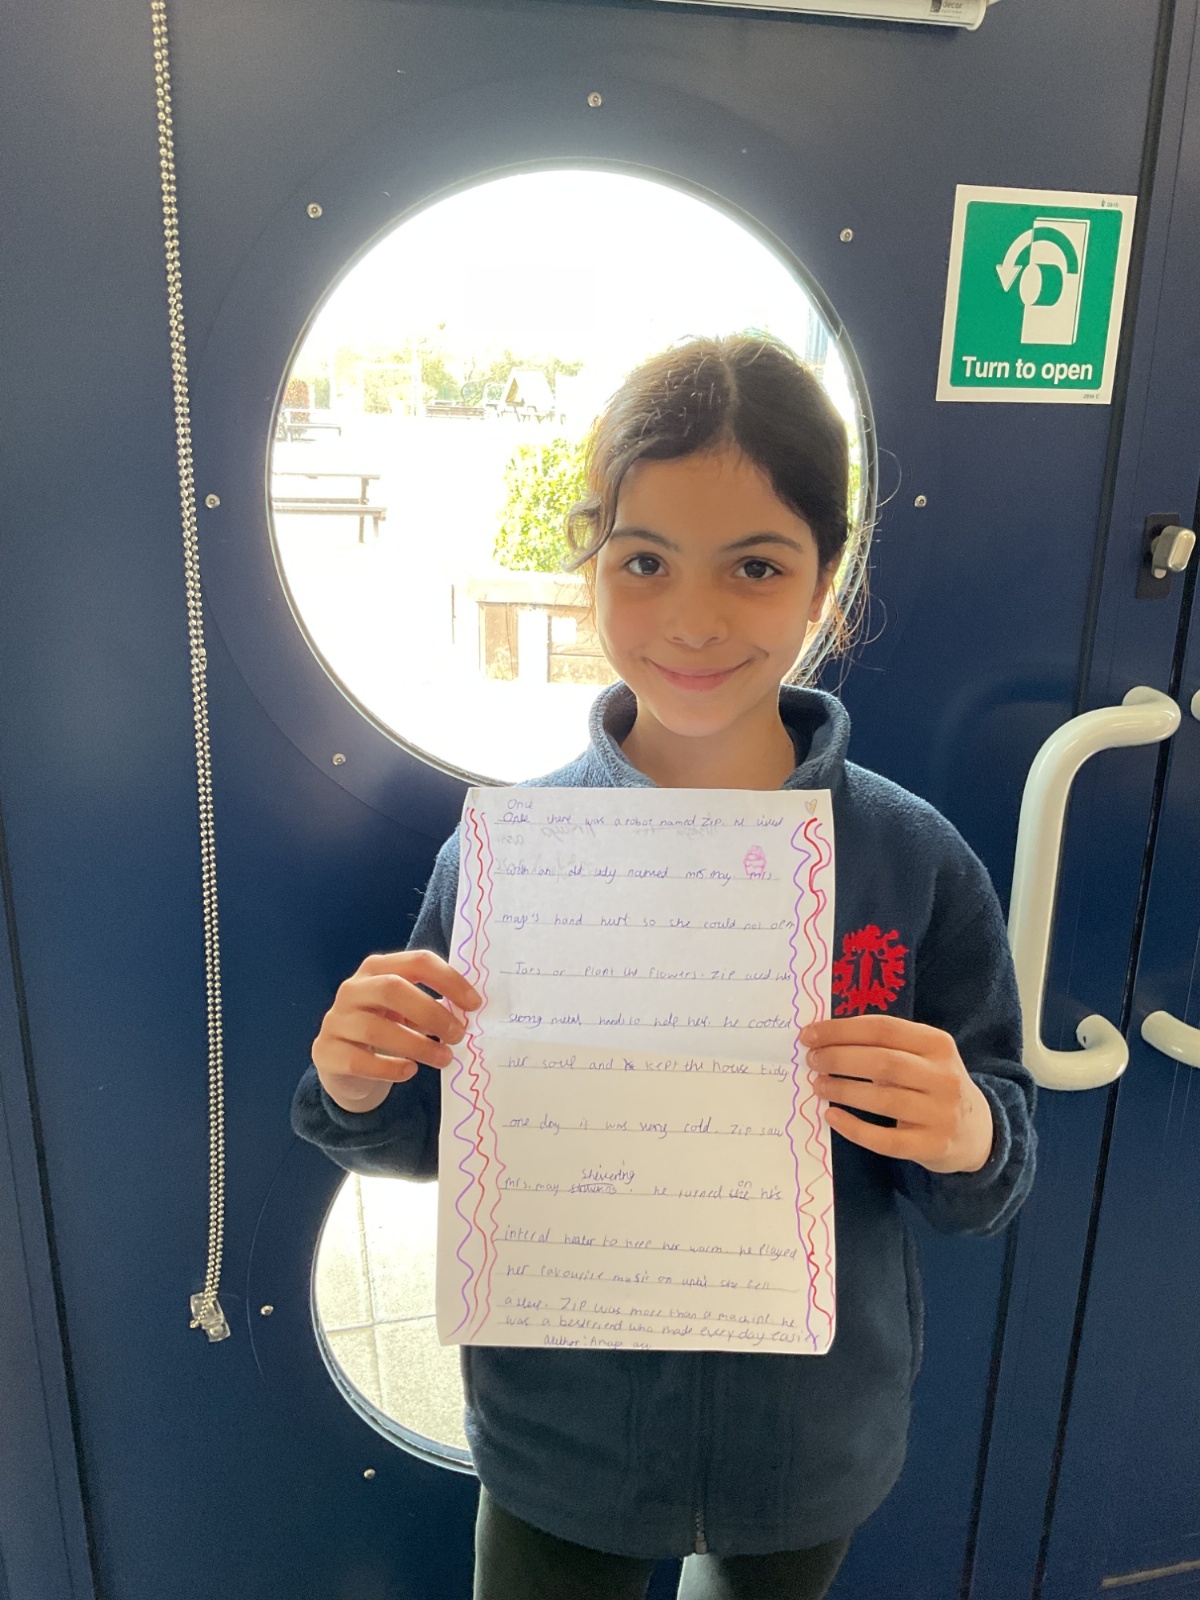 decor
Turn to open
Once
Once there was a robot named Zip. he lived
with an old lady named mrs may. mrs
may's hand hurt so she could not open
Jars or plant the flowers. Zip used his
strong metal hands to help her. he cooked
her soup and kept the house tidy
one day it was very cold. Zip saw
shivering
mrs. may . he turned on his
interal heater to keep her warm. he played
her favourite music on until she fell
asleep. Zip was more than a machine he
was a bestfriend who made every day easier
Author: